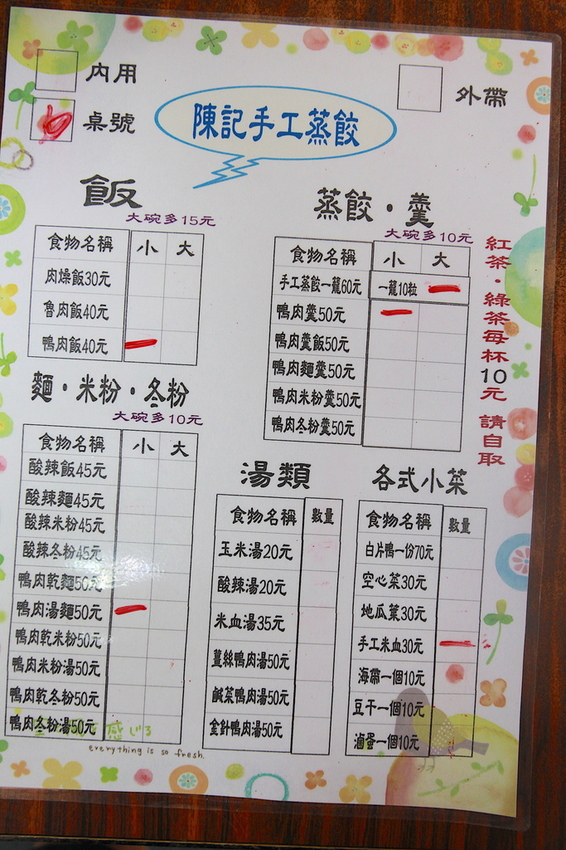 內用
桌號
外帶
陳記手工蒸餃
飯
大碗多15元
食物名稱 小 大
肉燥飯30元
魯肉飯40元
鴨肉飯40元
麵·米粉·冬粉
大碗多10元
食物名稱 小 大
酸辣飯45元
酸辣麵45元
酸辣米粉45元
酸辣冬粉45元
鴨肉乾麵50元
鴨肉湯麵50元
鴨肉乾米粉50元
鴨肉米粉湯50元
鴨肉乾冬粉50元
鴨肉冬粉湯50元
蒸餃·羹
大碗多10元
食物名稱 小 大
手工蒸餃一籠60元 一籠10粒
鴨肉羹50元
鴨肉羹飯50元
鴨肉麵羹50元
鴨肉米粉羹50元
鴨肉冬粉羹50元
紅茶·綠茶每杯10元 請自取
湯類
食物名稱 數量
玉米湯20元
酸辣湯20元
米血湯35元
薑絲鴨肉湯50元
鹹菜鴨肉湯50元
金針鴨肉湯50元
各式小菜
食物名稱 數量
白片鴨一份70元
空心菜30元
地瓜葉30元
手工米血30元
海帶一個10元
豆干一個10元
滷蛋一個10元
感じる
everything is so fresh.